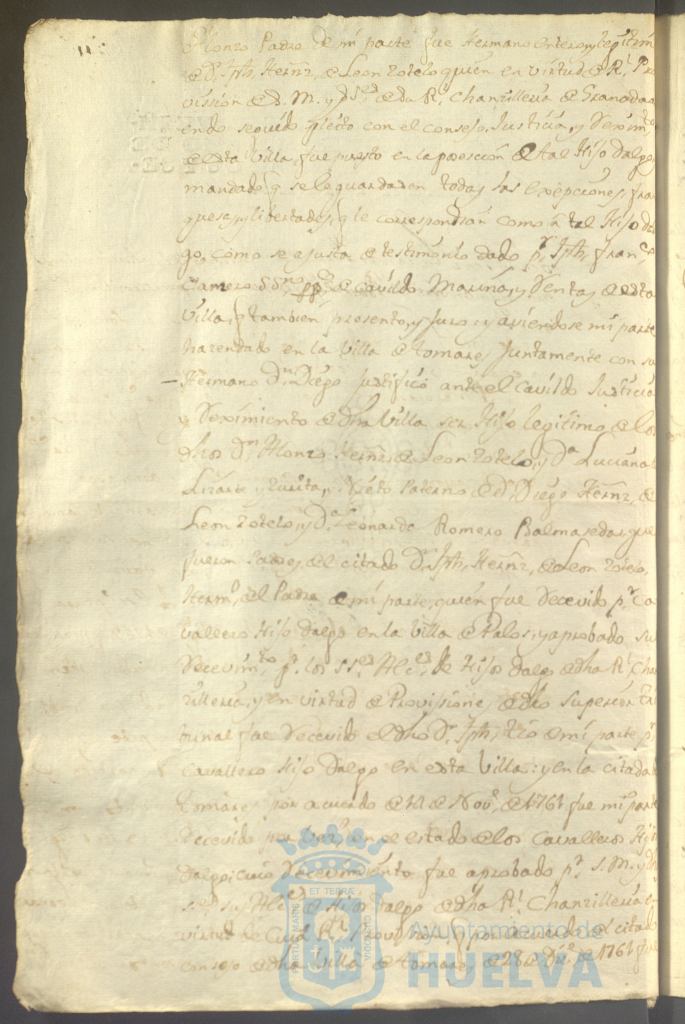 Alonso Padre de mi parte fue Hermano entero y legitim
de Dn. Jph, Hernz, de Leon sotelo, quien en virtud de Rl Pro
vission de S. M. y Sres de su Rl Chanzilleria de Granada
endo seguido pleito con el consejo, Justicia, y Reximto
de esta Villa fue puesto en la posesion de tal Hijo dalgo
mandado q se le guardasen todas las Excepciones, fran
quesas, y libertades, q le correspondian como a tal Hijo da
go, como se ajusta de testimonio dado pr Jph, Franco
Camero SSno ppco de cavildo Marina, y Rentas de esta
Villa, q tambien presento, y Juro: y aviendose mi parte
harendado en la Villa de tomares Juntamente con su
Hermano Dn Diego Justificó ante el Cavildo Justicia
y Reximiento de dha Villa ser Hijo legitimo de los
dhos Dn Alonso Hernz de Leon sotelo, y Da Luciana
Lizarte y Zurita, y Nieto Paterno de Dn Diego Hernz, de
Leon sotelo, y Da Leonarda Romero Balmaseda, que
fueron Padres del citado Dn Jph, Hernz, de Leon sotelo,
Hermo, del Padre de mi parte, quien fue Recevido pr Ca
vallero Hijo dalgo en la Villa de Palos, y aprobado su
Recevimto pr los SSes Alces de Hijos dalgo de dha Rl Chan
zilleria, y en virtud de Provissiones de dho Superior tri
bunal fue Recevido el dho Dn Jph, tio de mi parte pr
Cavallero Hijo dalgo en esta Villa: y en la citada
tomares por acuerdo de 12 de Nove, de 1761 fue mi parte
Recevido por Vezo, en el estado de los Cavalleros Hijos
dalgo: cuio Recevimiento fue aprobado pr S. M. y
Sres sus Alces de Hijos dalgo de dha Rl Chanzilleria
virtud de cuia Rl Provission, q por acuerdo del citado
consejo de dha Villa de tomares de 28 de Dice de 1761 fue
ET TERRÆ
Ayuntamiento de
HUELVA